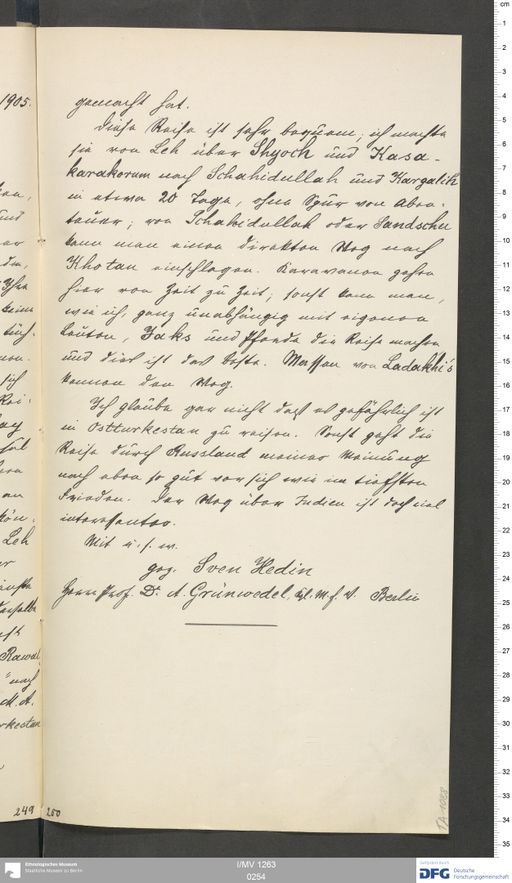 gemacht hat.
Diese Reise ist sehr bequem; ich machte
sie von Leh über Shyock und Kasa-
karakorum nach Schahidullah und Kargalik
in etwa 20 Tage, ohne Spur von Aben-
teuer; von Schahidullah oder Sandschu
kann man einen direkten Weg nach
Khotan einschlagen. Karawanen gehen
hier von Zeit zu Zeit; sonst kann man,
wie ich, ganz unabhängig mit eigenen
Leuten, Jaks und Pferde die Reise machen
und dies ist das beste. Massen von Ladakhi's
kennen den Weg.
Ich glaube gar nicht dass es gefährlich ist
in Ostturkestan zu reisen. Sonst geht die
Reise durch Russland meiner Meinung
nach eben so gut vor sich wie im tiefsten
Frieden. Der Weg über Indien ist doch viel
interessanter.
Mit u. s. w.
gez. Sven Hedin
Herrn Prof. Dr. A. Grünwedel, Kgl. M. f. V. Berlin
1905.
und
Leh
Rawal
nach
rkestan
249
250
TA 1088
Ethnologisches Museum
Staatliche Museen zu Berlin
I/MV 1263
0254
gefördert durch
DFG Deutsche
Forschungsgemeinschaft
cm
1
2
3
4
5
6
7
8
9
10
11
12
13
14
15
16
17
18
19
20
21
22
23
24
25
26
27
28
29
30
31
32
33
34
35